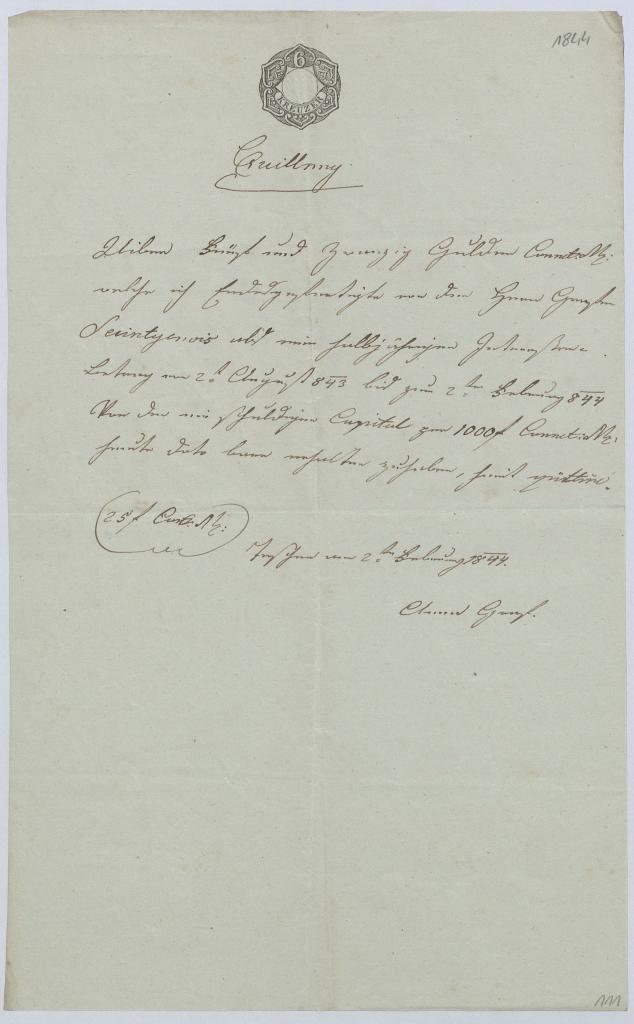 1844
6
KREUZER
Quittung
Uiber Fünf und Zwanzig Gulden Connt: Mz:
welche ich Endesgefertigte von den Herrn Grafen
als mein halbjährigen Interessen-
Betrag vom 2t August 843 bis zum 2ten Februar 844
Von den mir schuldigen Capital per 1000f Connt: Mz:
heute dato baar erhalten zuhaben, hiemit quittire.
25f Con: Mz:
Teschen am 2ten Februar 1844.
Anna Graf.
111